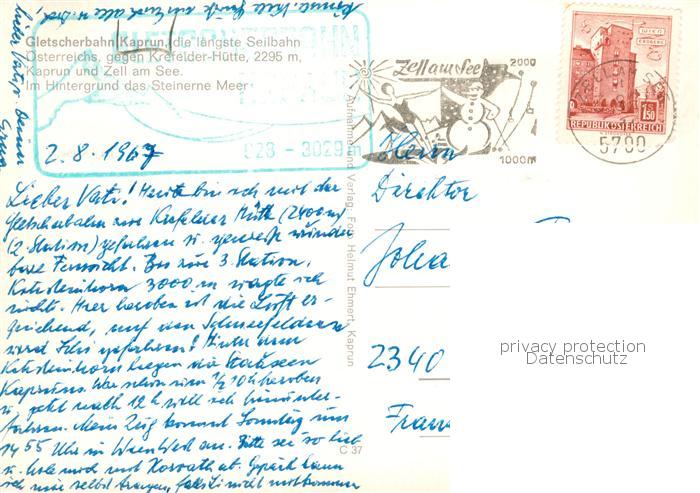 Gletscherbahn Kaprun, die längste Seilbahn
Österreichs, gegen Krefelder-Hütte, 2295 m,
Kaprun und Zell am See.
Im Hintergrund das Steinerne Meer
GLETSCHERBAHN
KAPRUN
928 - 3029 m
2.8.1967
Lieber Vati! Heute bin ich mit der
Gletscherbahn zur Krefelder Hütte (2400 m)
(2. Station) gefahren u. genieße wunder
bare Fernsicht. Bis zur 3. Station,
Kitzsteinhorn 3000 m wagte ich
nichts. Hier heroben ist die Luft er-
quickend, auf den Schneefeldern
wird Schi gefahren! Hinter dem
Kitzsteinhorn liegen die Stauseen
Kapruns. War schon um 1/2 10 h heroben
u. jetzt nach 12 h will ich hinunter-
fahren. Mein Zug kommt Sonntag um
14 55 Uhr in Wien West an. Bitte sei so lieb
u. hole mich mit Horvath ab. Gepäck kann
ich mir selbst tragen, falls Du nicht mitkommen
Lieber Vati, Deine
Aufnahme und Verlag: Foto Helmut Ehmert, Kaprun
C 37
Zell am See
2000
1000 m
5700
WIEN
ERDBERG
1.50
REPUBLIK ÖSTERREICH
Herrn
Direktor
Joha
2340
Fran
privacy protection
Datenschutz